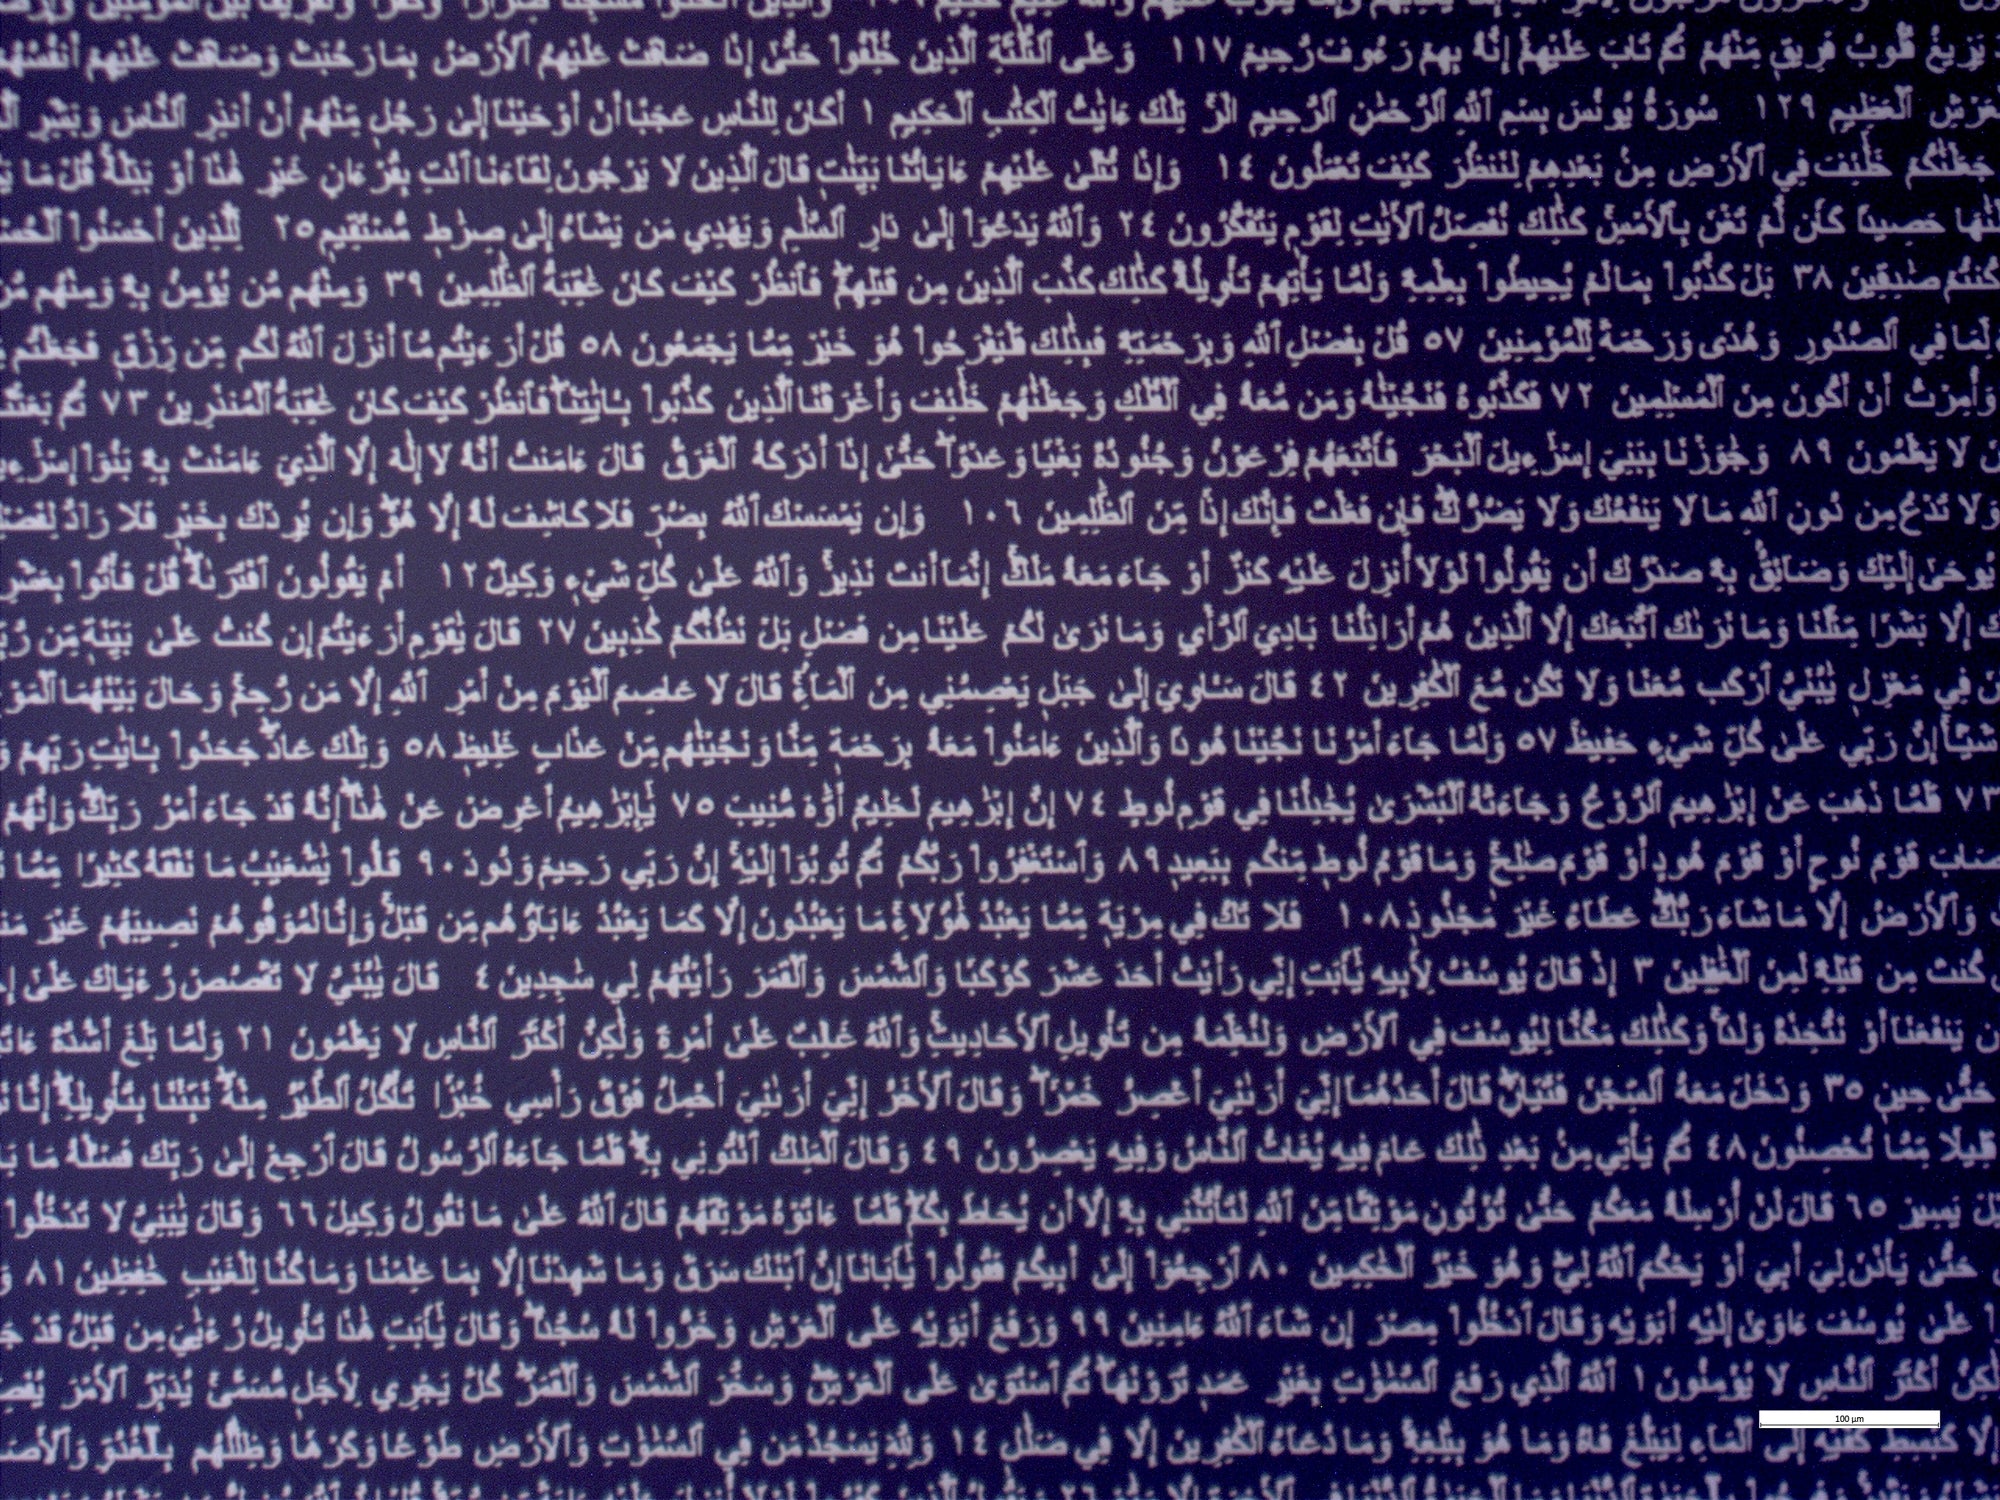 يَزِيغُ قُلُوبُ فَرِيقٍ مِّنْهُمْ ثُمَّ تَابَ عَلَيْهِمْ إِنَّهُ بِهِمْ رَءُوفٌ رَّحِيمٌ ١١٧ وَعَلَى ٱلثَّلَٰثَةِ ٱلَّذِينَ خُلِّفُوا۟ حَتَّىٰ إِذَا ضَاقَتْ عَلَيْهِمُ ٱلْأَرْضُ بِمَا رَحُبَتْ وَضَاقَتْ عَلَيْهِمْ
ٱلْعَظِيمِ ١٢٩ سُورَةُ يُونُسَ بِسْمِ ٱللَّهِ ٱلرَّحْمَٰنِ ٱلرَّحِيمِ الٓر تِلْكَ ءَايَٰتُ ٱلْكِتَٰبِ ٱلْحَكِيمِ ١ أَكَانَ لِلنَّاسِ عَجَبًا أَنْ أَوْحَيْنَا إِلَىٰ رَجُلٍ مِّنْهُمْ أَنْ أَنذِرِ ٱلنَّاسَ وَبَشِّرِ
جَعَلْنَٰكُمْ خَلَٰٓئِفَ فِي ٱلْأَرْضِ مِنۢ بَعْدِهِمْ لِنَنظُرَ كَيْفَ تَعْمَلُونَ ١٤ وَإِذَا تُتْلَىٰ عَلَيْهِمْ ءَايَاتُنَا بَيِّنَٰتٍ قَالَ ٱلَّذِينَ لَا يَرْجُونَ لِقَاءَنَا ٱئْتِ بِقُرْءَانٍ غَيْرِ هَٰذَا أَوْ بَدِّلْهُ قُلْ مَا
حَصِيدًا كَأَن لَّمْ تَغْنَ بِٱلْأَمْسِ كَذَٰلِكَ نُفَصِّلُ ٱلْأٓيَٰتِ لِقَوْمٍ يَتَفَكَّرُونَ ٢٤ وَٱللَّهُ يَدْعُوٓا۟ إِلَىٰ دَارِ ٱلسَّلَٰمِ وَيَهْدِي مَن يَشَاءُ إِلَىٰ صِرَٰطٍ مُّسْتَقِيمٍ ٢٥ لِّلَّذِينَ أَحْسَنُوا۟
كُنتُمْ صَٰدِقِينَ ٣٨ بَلْ كَذَّبُوا۟ بِمَا لَمْ يُحِيطُوا۟ بِعِلْمِهِ وَلَمَّا يَأْتِهِمْ تَأْوِيلُهُ كَذَٰلِكَ كَذَّبَ ٱلَّذِينَ مِن قَبْلِهِمْ فَٱنظُرْ كَيْفَ كَانَ عَٰقِبَةُ ٱلظَّٰلِمِينَ ٣٩ وَمِنْهُم مَّن يُؤْمِنُ بِهِ وَمِنْهُم
لِّمَا فِي ٱلصُّدُورِ وَهُدًى وَرَحْمَةٌ لِّلْمُؤْمِنِينَ ٥٧ قُلْ بِفَضْلِ ٱللَّهِ وَبِرَحْمَتِهِ فَبِذَٰلِكَ فَلْيَفْرَحُوا۟ هُوَ خَيْرٌ مِّمَّا يَجْمَعُونَ ٥٨ قُلْ أَرَءَيْتُم مَّا أَنزَلَ ٱللَّهُ لَكُم مِّن رِّزْقٍ فَجَعَلْتُم
وَأُمِرْتُ أَنْ أَكُونَ مِنَ ٱلْمُسْلِمِينَ ٧٢ فَكَذَّبُوهُ فَنَجَّيْنَٰهُ وَمَن مَّعَهُ فِي ٱلْفُلْكِ وَجَعَلْنَٰهُمْ خَلَٰٓئِفَ وَأَغْرَقْنَا ٱلَّذِينَ كَذَّبُوا۟ بِـَٔايَٰتِنَا فَٱنظُرْ كَيْفَ كَانَ عَٰقِبَةُ ٱلْمُنذَرِينَ ٧٣ ثُمَّ
لَا يَعْلَمُونَ ٨٩ وَجَٰوَزْنَا بِبَنِيٓ إِسْرَٰٓءِيلَ ٱلْبَحْرَ فَأَتْبَعَهُمْ فِرْعَوْنُ وَجُنُودُهُ بَغْيًا وَعَدْوًا حَتَّىٰ إِذَا أَدْرَكَهُ ٱلْغَرَقُ قَالَ ءَامَنتُ أَنَّهُ لَا إِلَٰهَ إِلَّا ٱلَّذِيٓ ءَامَنَتْ بِهِ بَنُوٓا۟
وَلَا تَدْعُ مِن دُونِ ٱللَّهِ مَا لَا يَنفَعُكَ وَلَا يَضُرُّكَ فَإِن فَعَلْتَ فَإِنَّكَ إِذًا مِّنَ ٱلظَّٰلِمِينَ ١٠٦ وَإِن يَمْسَسْكَ ٱللَّهُ بِضُرٍّ فَلَا كَاشِفَ لَهُ إِلَّا هُوَ وَإِن يُرِدْكَ بِخَيْرٍ فَلَا رَادَّ
يُوحَىٰ إِلَيْكَ وَضَائِقٌ بِهِ صَدْرُكَ أَن يَقُولُوا۟ لَوْلَا أُنزِلَ عَلَيْهِ كَنزٌ أَوْ جَاءَ مَعَهُ مَلَكٌ إِنَّمَا أَنتَ نَذِيرٌ وَٱللَّهُ عَلَىٰ كُلِّ شَيْءٍ وَكِيلٌ ١٢ أَمْ يَقُولُونَ ٱفْتَرَىٰهُ قُلْ فَأْتُوا۟ بِعَشْرِ
إِلَّا بَشَرًا مِّثْلَنَا وَمَا نَرَىٰكَ ٱتَّبَعَكَ إِلَّا ٱلَّذِينَ هُمْ أَرَاذِلُنَا بَادِيَ ٱلرَّأْيِ وَمَا نَرَىٰ لَكُمْ عَلَيْنَا مِن فَضْلٍ بَلْ نَظُنُّكُمْ كَٰذِبِينَ ٢٧ قَالَ يَٰقَوْمِ أَرَءَيْتُمْ إِن كُنتُ عَلَىٰ بَيِّنَةٍ مِّن
فِي مَعْزِلٍ يَٰبُنَيَّ ٱرْكَب مَّعَنَا وَلَا تَكُن مَّعَ ٱلْكَٰفِرِينَ ٤٢ قَالَ سَـَٔاوِيٓ إِلَىٰ جَبَلٍ يَعْصِمُنِي مِنَ ٱلْمَاءِ قَالَ لَا عَاصِمَ ٱلْيَوْمَ مِنْ أَمْرِ ٱللَّهِ إِلَّا مَن رَّحِمَ وَحَالَ بَيْنَهُمَا
شَيْـًٔا إِنَّ رَبِّي عَلَىٰ كُلِّ شَيْءٍ حَفِيظٌ ٥٧ وَلَمَّا جَاءَ أَمْرُنَا نَجَّيْنَا هُودًا وَٱلَّذِينَ ءَامَنُوا۟ مَعَهُ بِرَحْمَةٍ مِّنَّا وَنَجَّيْنَٰهُم مِّنْ عَذَابٍ غَلِيظٍ ٥٨ وَتِلْكَ عَادٌ جَحَدُوا۟ بِـَٔايَٰتِ رَبِّهِمْ
٧٣ فَلَمَّا ذَهَبَ عَنْ إِبْرَٰهِيمَ ٱلرَّوْعُ وَجَاءَتْهُ ٱلْبُشْرَىٰ يُجَٰدِلُنَا فِي قَوْمِ لُوطٍ ٧٤ إِنَّ إِبْرَٰهِيمَ لَحَلِيمٌ أَوَّٰهٌ مُّنِيبٌ ٧٥ يَٰٓإِبْرَٰهِيمُ أَعْرِضْ عَنْ هَٰذَا إِنَّهُ قَدْ جَاءَ أَمْرُ رَبِّكَ وَإِنَّهُمْ
قَوْمَ نُوحٍ أَوْ قَوْمَ هُودٍ أَوْ قَوْمَ صَٰلِحٍ وَمَا قَوْمُ لُوطٍ مِّنكُم بِبَعِيدٍ ٨٩ وَٱسْتَغْفِرُوا۟ رَبَّكُمْ ثُمَّ تُوبُوٓا۟ إِلَيْهِ إِنَّ رَبِّي رَحِيمٌ وَدُودٌ ٩٠ قَالُوا۟ يَٰشُعَيْبُ مَا نَفْقَهُ كَثِيرًا مِّمَّا
وَٱلْأَرْضُ إِلَّا مَا شَاءَ رَبُّكَ عَطَاءً غَيْرَ مَجْذُوذٍ ١٠٨ فَلَا تَكُ فِي مِرْيَةٍ مِّمَّا يَعْبُدُ هَٰٓؤُلَاءِ مَا يَعْبُدُونَ إِلَّا كَمَا يَعْبُدُ ءَابَاؤُهُم مِّن قَبْلُ وَإِنَّا لَمُوَفُّوهُمْ نَصِيبَهُمْ غَيْرَ
كُنتَ مِن قَبْلِهِ لَمِنَ ٱلْغَٰفِلِينَ ٣ إِذْ قَالَ يُوسُفُ لِأَبِيهِ يَٰٓأَبَتِ إِنِّي رَأَيْتُ أَحَدَ عَشَرَ كَوْكَبًا وَٱلشَّمْسَ وَٱلْقَمَرَ رَأَيْتُهُمْ لِي سَٰجِدِينَ ٤ قَالَ يَٰبُنَيَّ لَا تَقْصُصْ رُءْيَاكَ عَلَىٰ
يَنفَعَنَا أَوْ نَتَّخِذَهُ وَلَدًا وَكَذَٰلِكَ مَكَّنَّا لِيُوسُفَ فِي ٱلْأَرْضِ وَلِنُعَلِّمَهُ مِن تَأْوِيلِ ٱلْأَحَادِيثِ وَٱللَّهُ غَالِبٌ عَلَىٰ أَمْرِهِ وَلَٰكِنَّ أَكْثَرَ ٱلنَّاسِ لَا يَعْلَمُونَ ٢١ وَلَمَّا بَلَغَ أَشُدَّهُ
حَتَّىٰ حِينٍ ٣٥ وَدَخَلَ مَعَهُ ٱلسِّجْنَ فَتَيَانِ قَالَ أَحَدُهُمَا إِنِّيٓ أَرَىٰنِيٓ أَعْصِرُ خَمْرًا وَقَالَ ٱلْأٓخَرُ إِنِّيٓ أَرَىٰنِيٓ أَحْمِلُ فَوْقَ رَأْسِي خُبْزًا تَأْكُلُ ٱلطَّيْرُ مِنْهُ نَبِّئْنَا بِتَأْوِيلِهِ إِنَّا
قَلِيلًا مِّمَّا تُحْصِنُونَ ٤٨ ثُمَّ يَأْتِي مِنۢ بَعْدِ ذَٰلِكَ عَامٌ فِيهِ يُغَاثُ ٱلنَّاسُ وَفِيهِ يَعْصِرُونَ ٤٩ وَقَالَ ٱلْمَلِكُ ٱئْتُونِي بِهِ فَلَمَّا جَاءَهُ ٱلرَّسُولُ قَالَ ٱرْجِعْ إِلَىٰ رَبِّكَ فَسْـَٔلْهُ مَا
يَسِيرٌ ٦٥ قَالَ لَنْ أُرْسِلَهُ مَعَكُمْ حَتَّىٰ تُؤْتُونِ مَوْثِقًا مِّنَ ٱللَّهِ لَتَأْتُنَّنِي بِهِ إِلَّا أَن يُحَاطَ بِكُمْ فَلَمَّا ءَاتَوْهُ مَوْثِقَهُمْ قَالَ ٱللَّهُ عَلَىٰ مَا نَقُولُ وَكِيلٌ ٦٦ وَقَالَ يَٰبَنِيَّ لَا تَدْخُلُوا۟
حَتَّىٰ يَأْذَنَ لِيٓ أَبِيٓ أَوْ يَحْكُمَ ٱللَّهُ لِي وَهُوَ خَيْرُ ٱلْحَٰكِمِينَ ٨٠ ٱرْجِعُوٓا۟ إِلَىٰٓ أَبِيكُمْ فَقُولُوا۟ يَٰٓأَبَانَا إِنَّ ٱبْنَكَ سَرَقَ وَمَا شَهِدْنَا إِلَّا بِمَا عَلِمْنَا وَمَا كُنَّا لِلْغَيْبِ حَٰفِظِينَ ٨١
عَلَىٰ يُوسُفَ ءَاوَىٰ إِلَيْهِ أَبَوَيْهِ وَقَالَ ٱدْخُلُوا۟ مِصْرَ إِن شَاءَ ٱللَّهُ ءَامِنِينَ ٩٩ وَرَفَعَ أَبَوَيْهِ عَلَى ٱلْعَرْشِ وَخَرُّوا۟ لَهُ سُجَّدًا وَقَالَ يَٰٓأَبَتِ هَٰذَا تَأْوِيلُ رُءْيَٰيَ مِن قَبْلُ قَدْ
أَكْثَرَ ٱلنَّاسِ لَا يُؤْمِنُونَ ١ ٱللَّهُ ٱلَّذِي رَفَعَ ٱلسَّمَٰوَٰتِ بِغَيْرِ عَمَدٍ تَرَوْنَهَا ثُمَّ ٱسْتَوَىٰ عَلَى ٱلْعَرْشِ وَسَخَّرَ ٱلشَّمْسَ وَٱلْقَمَرَ كُلٌّ يَجْرِي لِأَجَلٍ مُّسَمًّى يُدَبِّرُ ٱلْأَمْرَ
إِلَّا كَبَٰسِطِ كَفَّيْهِ إِلَى ٱلْمَاءِ لِيَبْلُغَ فَاهُ وَمَا هُوَ بِبَٰلِغِهِ وَمَا دُعَاءُ ٱلْكَٰفِرِينَ إِلَّا فِي ضَلَٰلٍ ١٤ وَلِلَّهِ يَسْجُدُ مَن فِي ٱلسَّمَٰوَٰتِ وَٱلْأَرْضِ طَوْعًا وَكَرْهًا وَظِلَٰلُهُم بِٱلْغُدُوِّ
100 µm